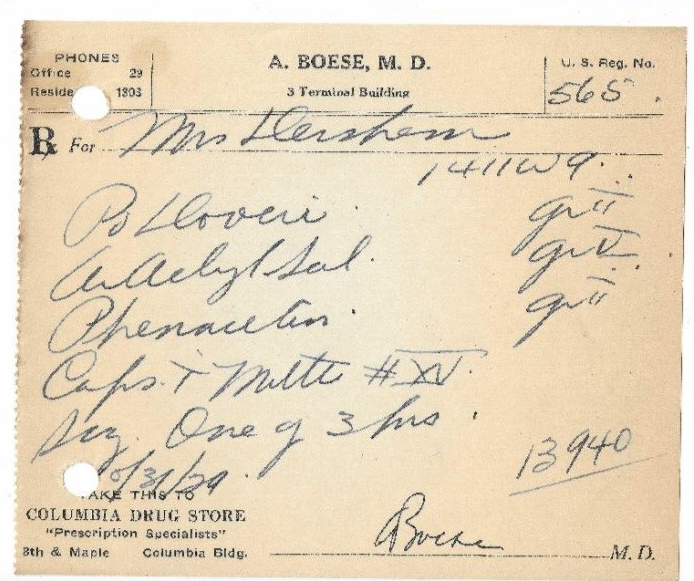 PHONES
Office 29
Reside 1303
A. BOESE, M. D.
3 Terminal Building
U. S. Reg. No.
565
℞ For Mrs Hershem
1411 W 9.
Po Doveri gr ii
Ac Acetyl Sal. gr V
Phenacetin gr ii
Caps. i Mitte # XV.
Sig. One q 3 hrs.
/31/29
13940
TAKE THIS TO
COLUMBIA DRUG STORE
"Prescription Specialists"
8th & Maple Columbia Bldg.
ABoese M. D.